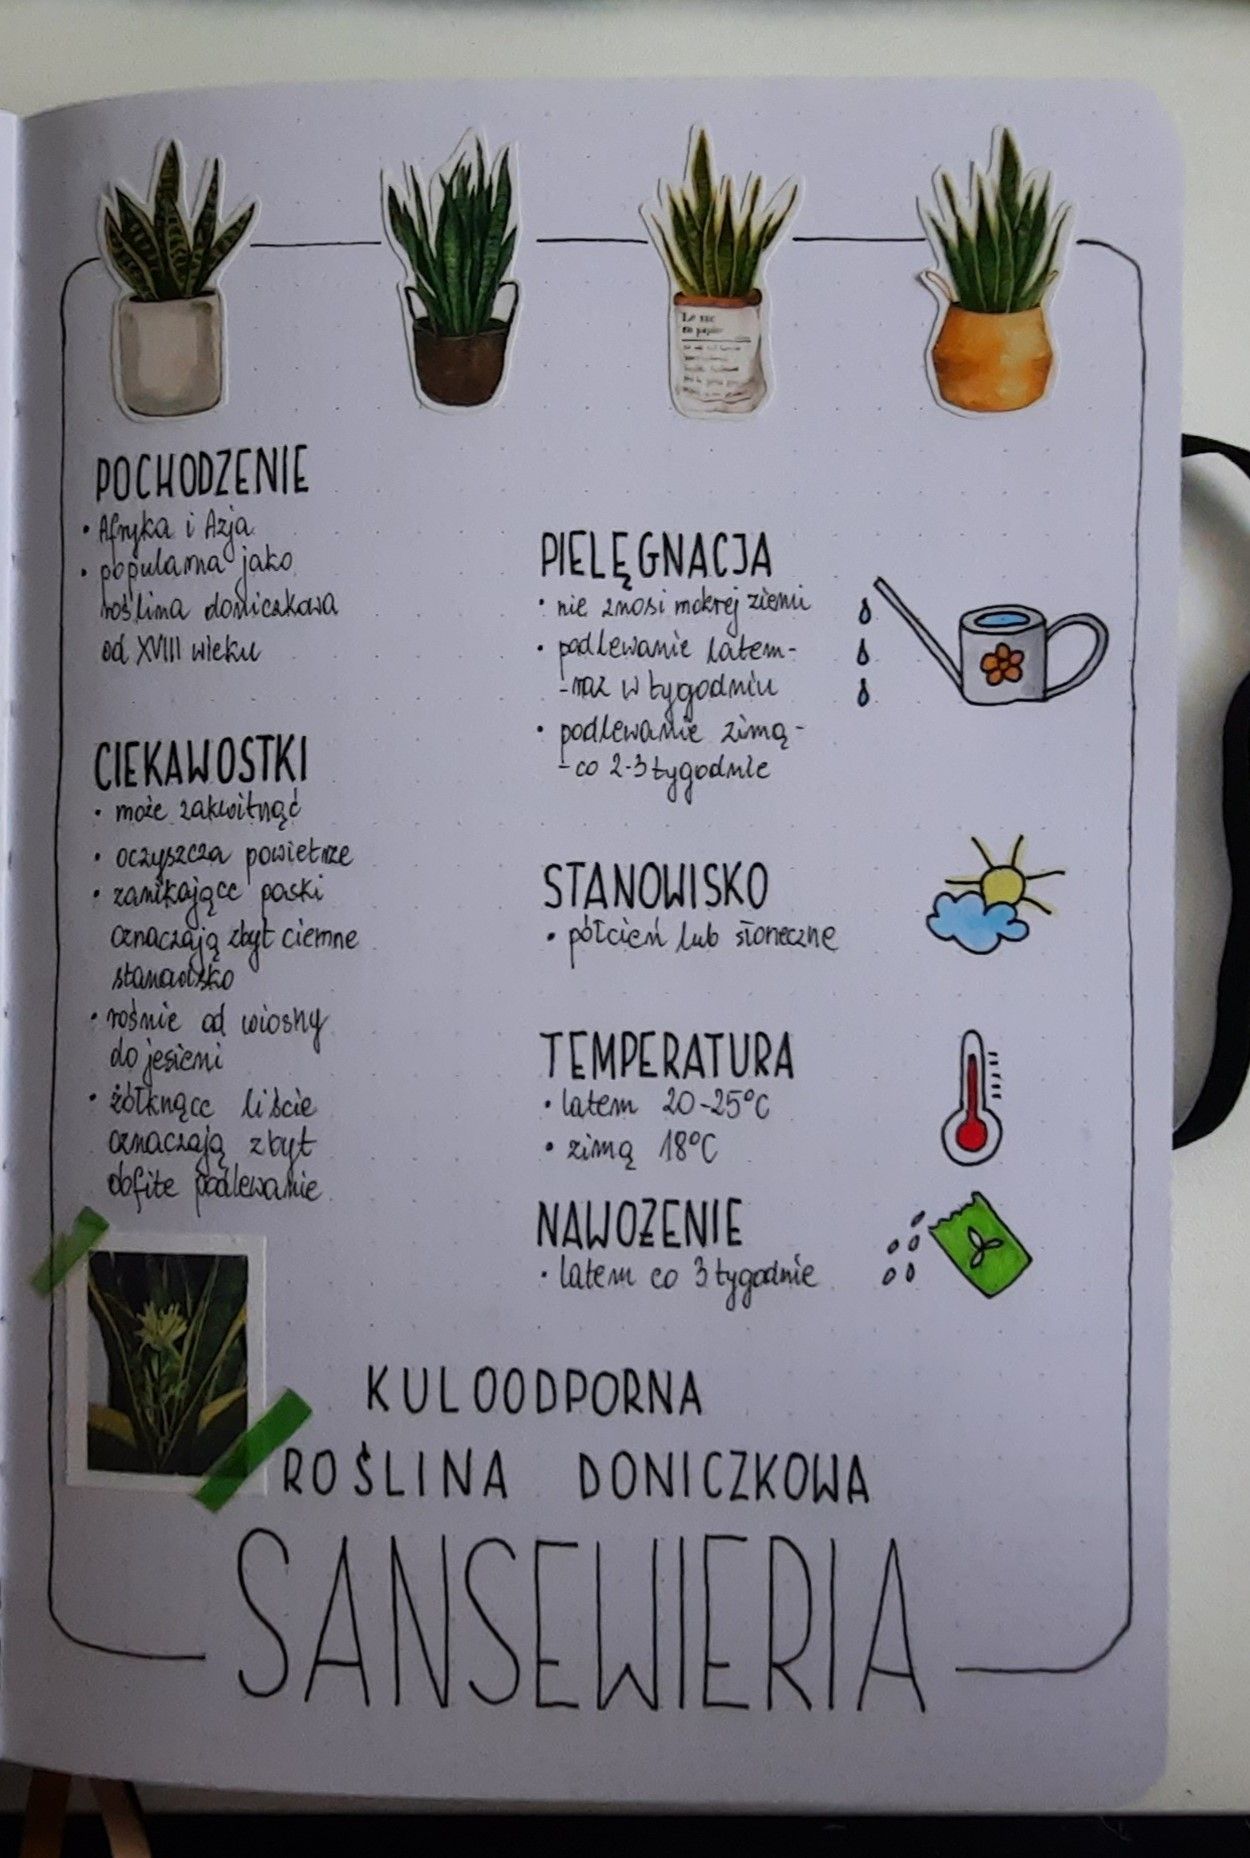 Le sac
en papier
POCHODZENIE
• Afryka i Azja
• popularna jako
roślina doniczkowa
od XVIII wieku
CIEKAWOSTKI
• może zakwitnąć
• oczyszcza powietrze
• zanikające paski
oznaczają zbyt ciemne
stanowisko
• rośnie od wiosny
do jesieni
• żółknące liście
oznaczają zbyt
obfite podlewanie
PIELĘGNACJA
• nie znosi mokrej ziemi
• podlewanie latem-
-raz w tygodniu
• podlewanie zimą-
-co 2-3 tygodnie
STANOWISKO
• półcień lub słoneczne
TEMPERATURA
• latem 20-25°C
• zimą 18°C
NAWOŻENIE
• latem co 3 tygodnie
KULOODPORNA
ROŚLINA DONICZKOWA
SANSEWIERIA